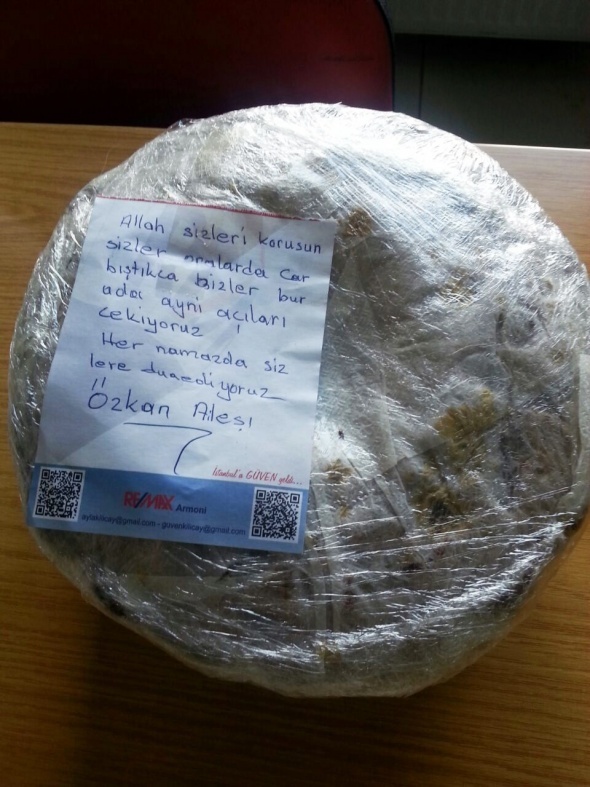 Allah sizleri korusun
sizler oralarda car
pıştıkca bizler bur
ada ayni açıları
cekiyoruz
Her namazda siz
lere duaediyoruz
Özkan Ailesi
İstanbul'a GÜVEN geldi...
RE/MAX Armoni
aylakilicay@gmail.com - guvenkilicay@gmail.com